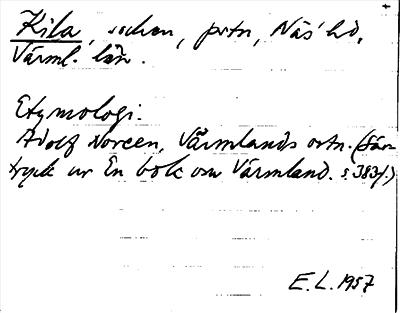 Kila, socken, prtn, Näs hd,
Värml. län.
Etymologi:
Adolf Noreen, Värmlands ortn. (Sär-
tryck ur En bok om Värmland. s. 383f.)
E.L. 1957